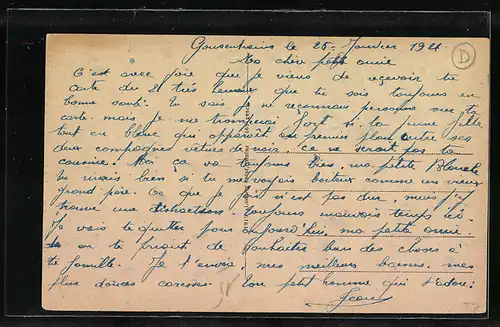 Gonsenheim le 25 Janvier 1921
Ma chère petite amie
C'est avec joie que je viens de recevoir ta
carte du 21 très heureux que tu sois toujours en
bonne santé. Tu sais je ne reconnais personne sur ta
carte mais je me tromperai fort si la jeune fille
tout en blanc qui apparait au premier plan entre ses
deux compagnes vêtues de noir, ce ne serait pas ta
cousine. Moi ça va toujours bien, ma petite Blanche
tu riais bien si tu me voyais boiteux comme un vieux
grand père. Ce que je fais n'est pas dur, mais j'y
trouve une distraction. toujours mauvais temps ici.
Je vais te quitter pour aujourd'hui, ma petite amie
en te priant de souhaiter bien des choses à
ta famille. Je t'envoie mes meilleurs baisers, mes
plus douces caresses. Ton petit homme qui t'adore.
Jean
D